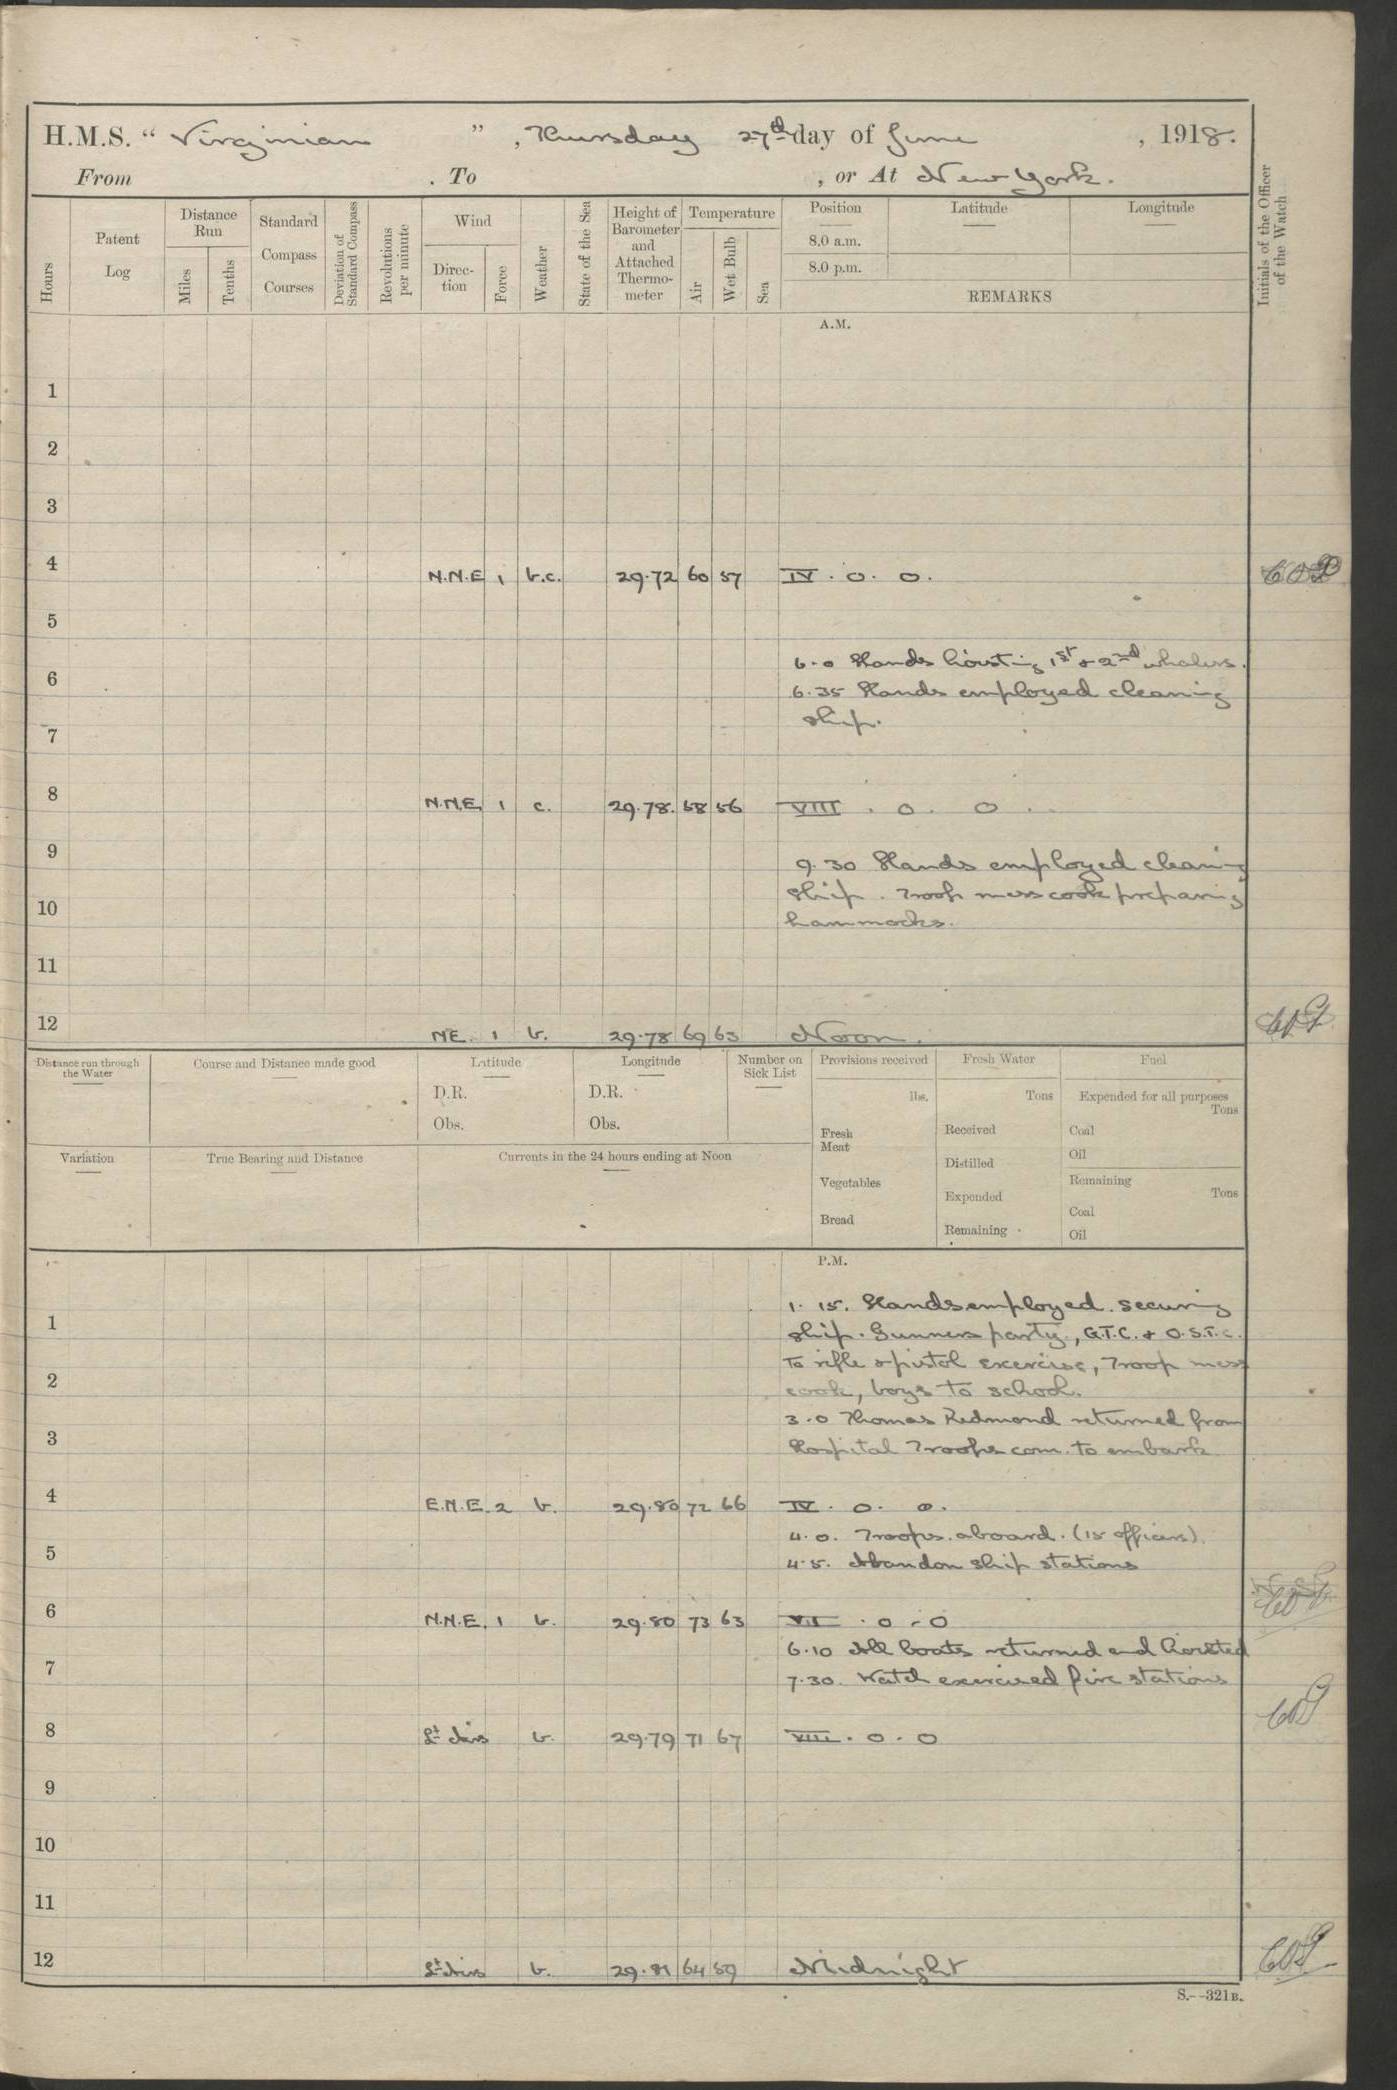 H.M.S. “ Virginian ”, Thursday 27th day of June , 1918.
From . To , or At New York.
Hours
Patent Log
Distance Run
Miles
Tenths
Standard Compass Courses
Deviation of Standard Compass
Revolutions per minute
Wind
Direc-tion
Force
Weather
State of the Sea
Height of Barometer and Attached Thermo-meter
Temperature
Air
Wet Bulb
Sea
Position
Latitude
Longitude
8.0 a.m.
8.0 p.m.
REMARKS
Initials of the Officer of the Watch
A.M.
1
2
3
4 N.N.E 1 b.c. 29.72 60 57 IV . 0 . 0 .
5
6.0 Hands hoisting 1st & 2nd whalers.
6
6.35 Hands employed cleaning
ship.
7
8 N.N.E. 1 c. 29.78. 58 56 VIII . 0 . 0 . .
9
9.30 Hands employed cleaning
ship . Troop mess cook preparing
10
hammocks.
11
12 NE. 1 b. 29.78 69 63 Noon.
Distance run through the Water
Course and Distance made good
Latitude
D.R.
Obs.
Longitude
D.R.
Obs.
Number on Sick List
Provisions received
lbs.
Fresh Meat
Vegetables
Bread
Fresh Water
Tons
Received
Distilled
Expended
Remaining
Fuel
Expended for all purposes
Tons
Coal
Oil
Remaining
Tons
Coal
Oil
Variation
True Bearing and Distance
Currents in the 24 hours ending at Noon
P.M.
1.15. Hands employed securing
1
ship. Gunners party., G.T.C. & O.S.T.C.
to rifle & pistol exercise, Troop mess
2
cook, boys to school.
3.0 Thomas Redmond returned from
3
Hospital Troops com. to embark
4 E.N.E. 2 b. 29.80 72 66 IV . 0 . 0 .
4.0. Troops aboard. (15 officers).
5
4.5. Abandon ship stations
6 N.N.E. 1 b. 29.80 73 63 VI . 0 . 0
6.10 All boats returned and hoisted
7
7.30. Watch exercised fire stations
8 Lt Airs b. 29.79 71 67 VIII . 0 . 0
9
10
11
12 Lt Airs b. 29.81 64 59 Midnight
S.—321B.